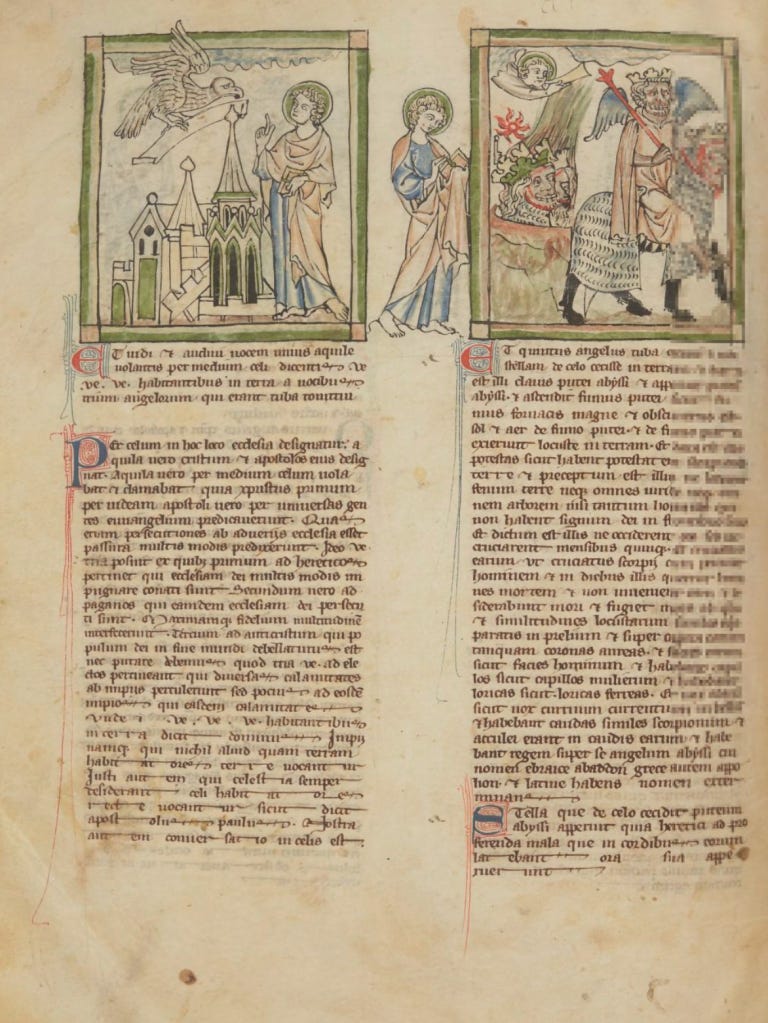 Et vidi & audivi vocem unius aquile
volantis per medium celi dicentis ve
ve. ve. habitantibus in terra a vocibus
trium angelorum qui erant tuba
Per celum in hoc loco ecclesia designatur. a
quila vero cristum & apostolos eius desig
nat. Aquila vero per medium celum vola
bat & clamabat quia primum
per apostoli vero per universas gen
tes euuangelium predicaverunt.
etiam persecutiones ab adversis ecclesia esset
passura multis modis predixerunt. Ideo ve
tria posint ex quibus primum ad hereticos
pertinet qui ecclesiam dei multis modis im
pugnare conati sunt. Secundum vero ad
paganos qui eamdem ecclesiam dei persecu
ti sunt. & fidelium multitudinem
interfecerunt. Tercium ad anticristum qui po
pulum dei in fine mundi debellaturus est
nec putare debemus quod tria ve. ad ele
ctos pertineant qui diversas calamitates
ab impiis pertulerunt sed pocius ad eosdem
impios qui easdem calamitates
Vnde ve. ve. ve. habitantibus
in terra dicit dominus Impii
namque qui nichil aliud quam terram
habitatores terre vocantur
Justi autem qui celestia semper
desiderant celi habitatores
recte vocantur sicut dicit
apostolus paulus. Nostra
autem conversatio in celis est.
Et quintus angelus tuba
stellam de celo cecidisse in terra
est illi clavis putei abyssi &
abyssi. & ascendit fumus putei
mus fornacis magne &
sol & aer de fumo putei. & de
exierunt locuste in terram. Et
potestas sicut habent
terre & preceptum est illis
fenum terre neque omnes
nem arborem nisi tantum
non habent signum dei in
Et dictum est illis ne occiderent
cruciarent mensibus quinque.
earum ut cruciatus scorpii
hominem & in diebus illis
nes mortem & non
siderabunt mori & fugiet
& similitudines locustarum
paratis in prelium & super
tanquam coronas aureas. &
sicut facies hominum &
los sicut capillos mulierum &
loricas sicut loricas ferreas. Et
sicut vox curruum
& habebant caudas similes scorpionum &
aculei erant in caudis earum &
bant regem super se angelum abyssi cui
nomen ebraice abaddon grece autem appo
lion. & latine habens nomen exter
minans
Stella que de celo cecidit puteum
abyssi apperuit quia heretici ad pro
ferenda mala que in cordibus eorum
latebant ora sua appe
ruerunt